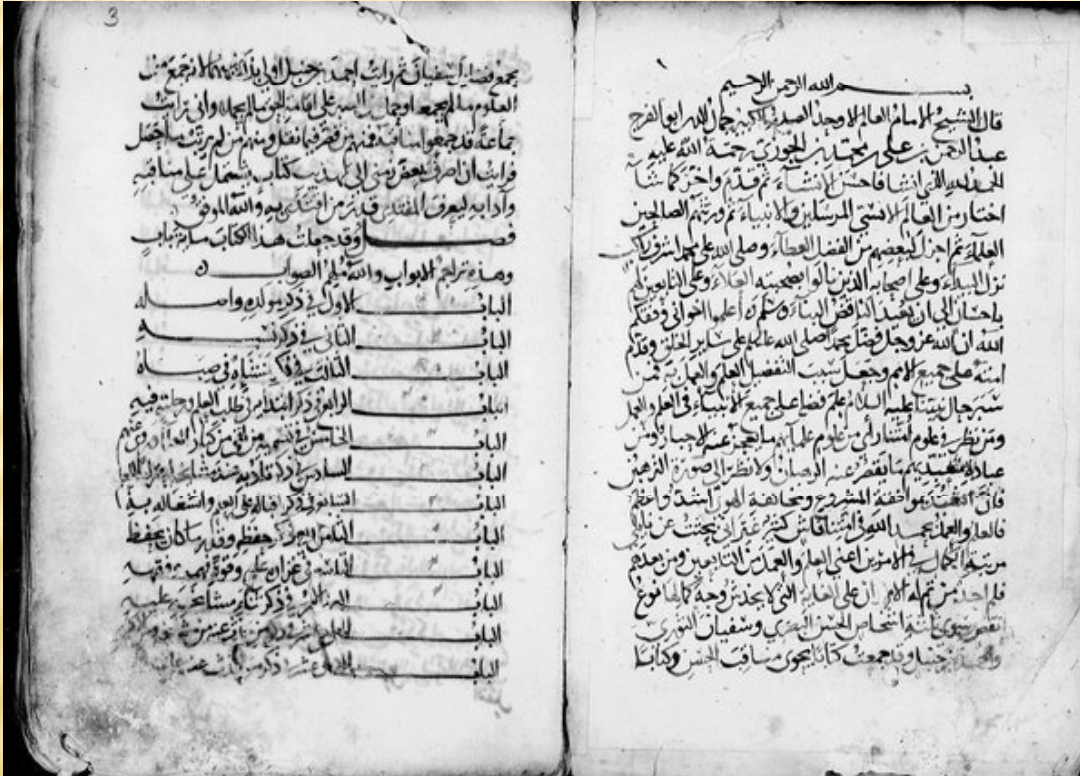 بسم الله الرحمن الرحيم
قال الشيخ الامام العالم الاوحد الصدر الكبير جمال الدين ابو الفرج
عبد الرحمن بن علي بن محمد بن الجوزي رحمة الله عليه
الحمد لله الذي انشا فاحسن الانشاء ثم قدم واخر كما شاء
اختار من العالم الانسي المرسلين والانبياء ثم ورثتهم الصالحين
العلماء ثم اجزل لبعضهم من الفضل العطاء وصلى الله على محمد اشرف راكب
نزل البيداء وعلى اصحابه الذين نالوا بصحبته العلاء وعلى التابعين لهم
باحسان الى ان يعيد الناقض البناء وسلم اعلموا اخواني وفقكم
الله ان الله عز وجل فضل محمدا صلى الله عليه على ساير الخلق وقدم
امته على جميع الامم وجعل سبب التفضيل العلم والعمل به فمن
سبر حال نبينا عليه السلام علم فضله على جميع الانبياء في العلم والعمل
ومن نظر في علوم امتنا راى من علوم علمائهم ما يعجز عنه الاحبار ومن
عبادة متعبديهم ما يقصر عنه الرهبان ولا تنظر الى صورة الترهبن
فان موافقة المشروع ومخالفة الهوى اشد واعظم
فالعلم والعمل بحمد الله في امتنا فاش كثير غير اني بحثت عن نايلي
مرتبة الكمال في الامرين اعني العلم والعمل من التابعين ومن بعدهم
فلم اجد من تم له الامران على الغاية التي لا يخدش وجه كمالها نوع
نقص سوى ثلثة اشخاص الحسن البصري وسفيان الثوري
واحمد بن حنبل وقد جمعت كتابا يحوي مناقب الحسن وكتابا
3
يجمع فضايل سفيان ثم رايت احمد بن حنبل اولى بذلك منهما لانه جمع من
العلوم ما لم يجمعا وحمل من الصبر على اقامة الحق ما لم يحملا واني رايت
جماعة قد جمعوا مناقبه فمنهم من قصر فيما نقل ومنهم من لم يرتب ما حصل
فرايت ان اصرف بعض زمني الى تهذيب كتاب يشتمل على مناقبه
وادابه ليعرف المقتدي قدر من اقتدى به والله الموفق
فصل وقد جعلت هذا الكتاب ماية باب
وهذه تراجم الابواب والله ملهم الصواب
الباب الاول في ذكر مولده واصله
الباب الثاني في ذكر نسبه
الباب الثالث في ذكر منشاه في صباه
الباب الرابع في ذكر ابتدائه في طلب العلم ورحلته فيه
الباب الخامس في تسمية من لقي من كبار العلماء وروى عنهم
الباب السادس في ذكر تادبه عند مشايخه
الباب السابع في ذكر اقباله على العلم واشتغاله به
الباب الثامن في ذكر حفظه وقدر ما كان يحفظ
الباب التاسع في غزارة علمه وقوة فهمه وفقهه
الباب العاشر في ذكر ثناء مشايخه عليه
الباب الحادي عشر في ذكر من حدث عنه من
الباب الثاني عشر في ذكر من حدث عنه